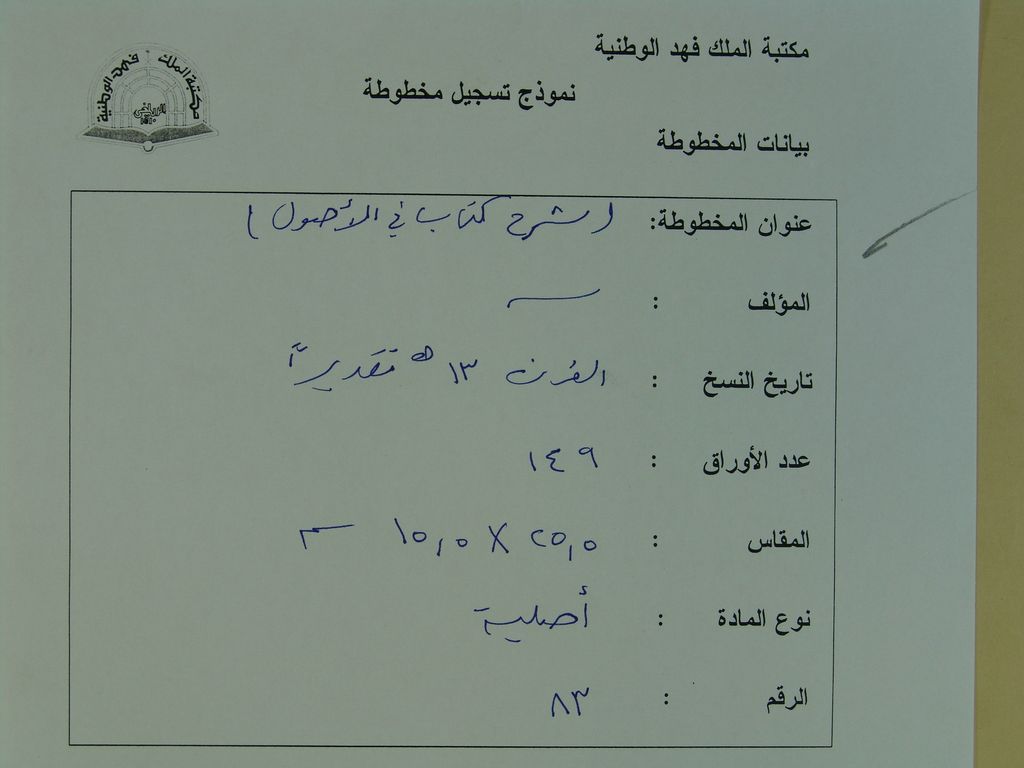 مكتبة الملك فهد الوطنية
نموذج تسجيل مخطوطة
مكتبة الملك فهد الوطنية
الرياض
بيانات المخطوطة
عنوان المخطوطة: (شرح كتاب في الأصول)
المؤلف : ــ
تاريخ النسخ : القرن ١٣ هـ تقديراً
عدد الأوراق : ١٤٩
المقاس : ٢٥,٥ X ١٥,٥ سم
نوع المادة : أصلية
الرقم : ٨٣